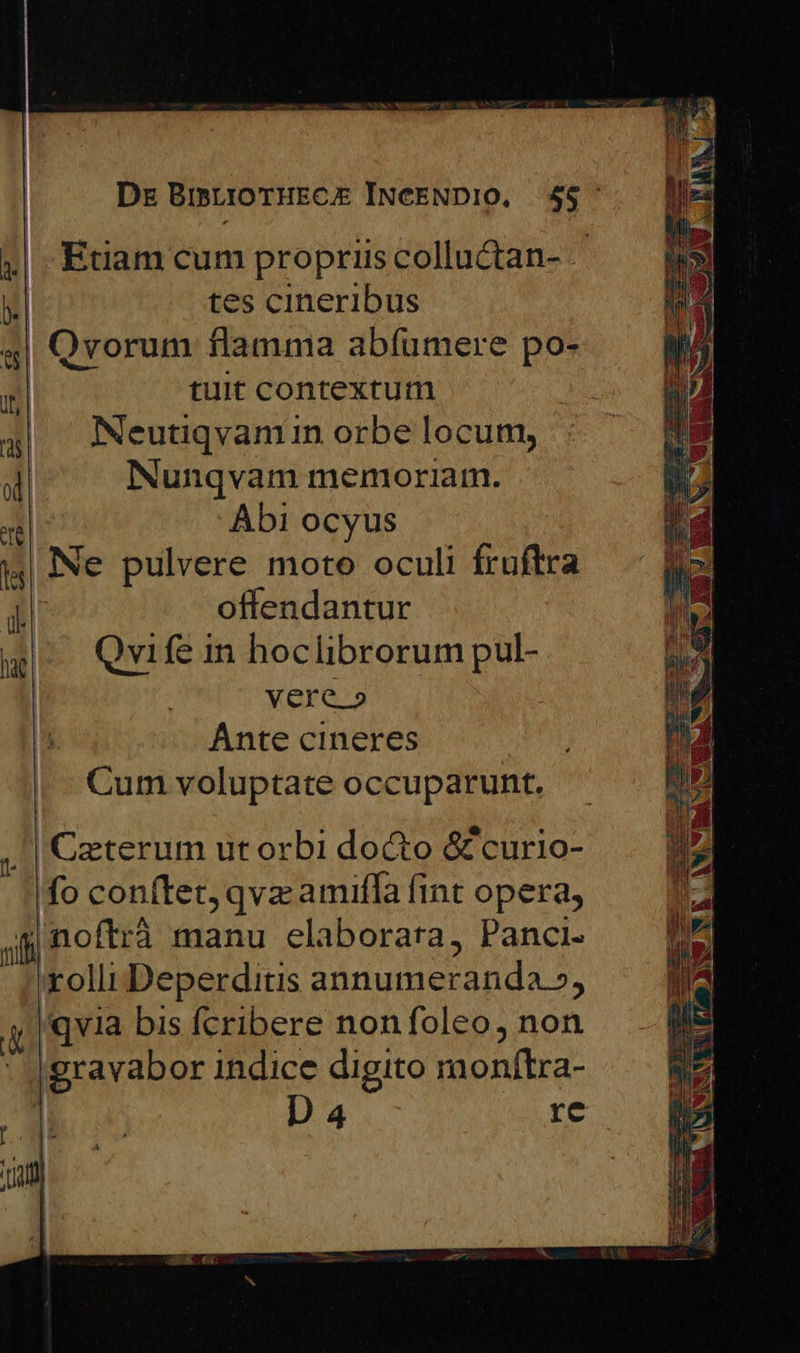 DE BIBLIOTHECÆ INCENDIO, 55
Etiam cum propriis colluctan-
tes cineribus
Qvorum flamma abſumere po-
tuit contextum
Neutiqvam in orbe locum,
Nunqvam memoriam.
Abi ocyus
Ne pulvere moto oculi fruſtra
offendantur
Qvi ſe in hoc librorum pul-
vere,
Ante cineres
Cum voluptate occuparunt.
Cæterum ut orbi docto & curio-
ſo conſtet, qvæ amiſſa ſint opera,
noſtrâ manu elaborata, Panci-
rolli Deperditis annumeranda,
qvia bis ſcribere non ſoleo, non
gravabor indice digito monſtra-
D 4 re